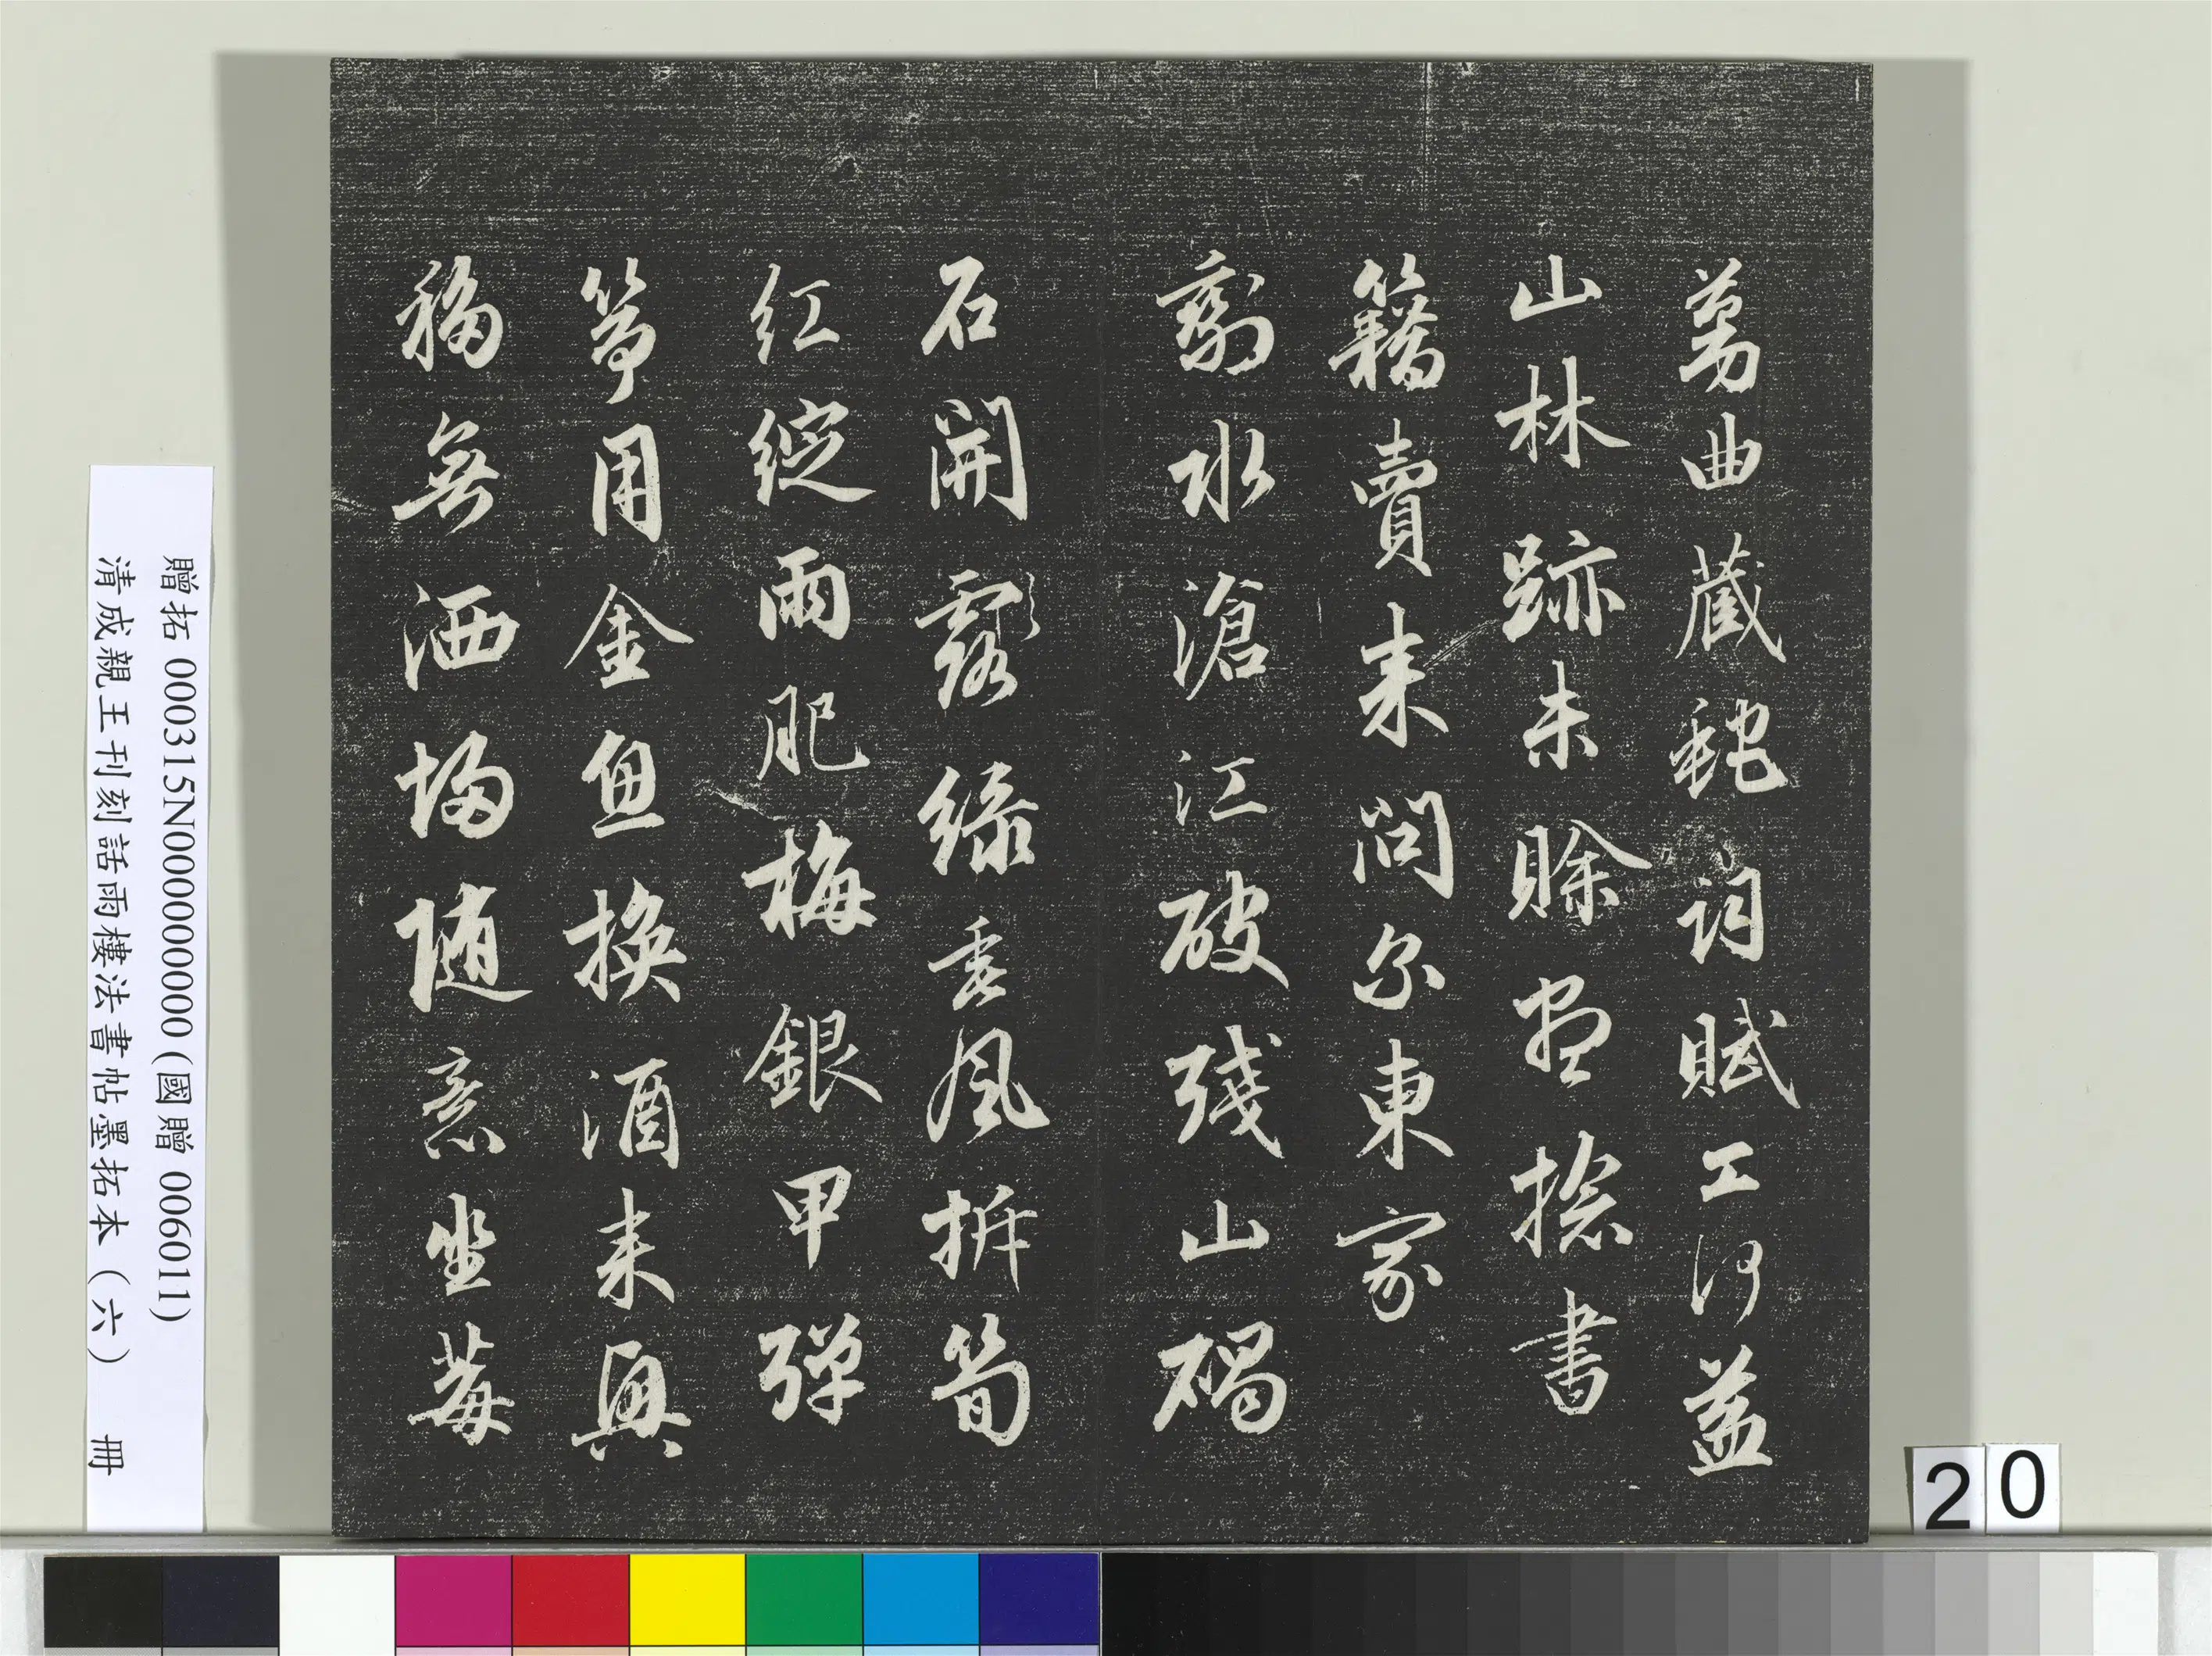 蔓曲藏虵詞賦工何益
山林跡未賒盡捻書
籍賣来問尔東家
剩水滄江破殘山碣
石開露綠垂風拆筍
紅綻雨肥梅銀甲彈
箏用金魚換酒来興
移無洒掃随意坐莓
贈拓 000315N000000000 (國贈 006011)
清成親王刊刻詒雨樓法書帖墨拓本(六) 冊
20